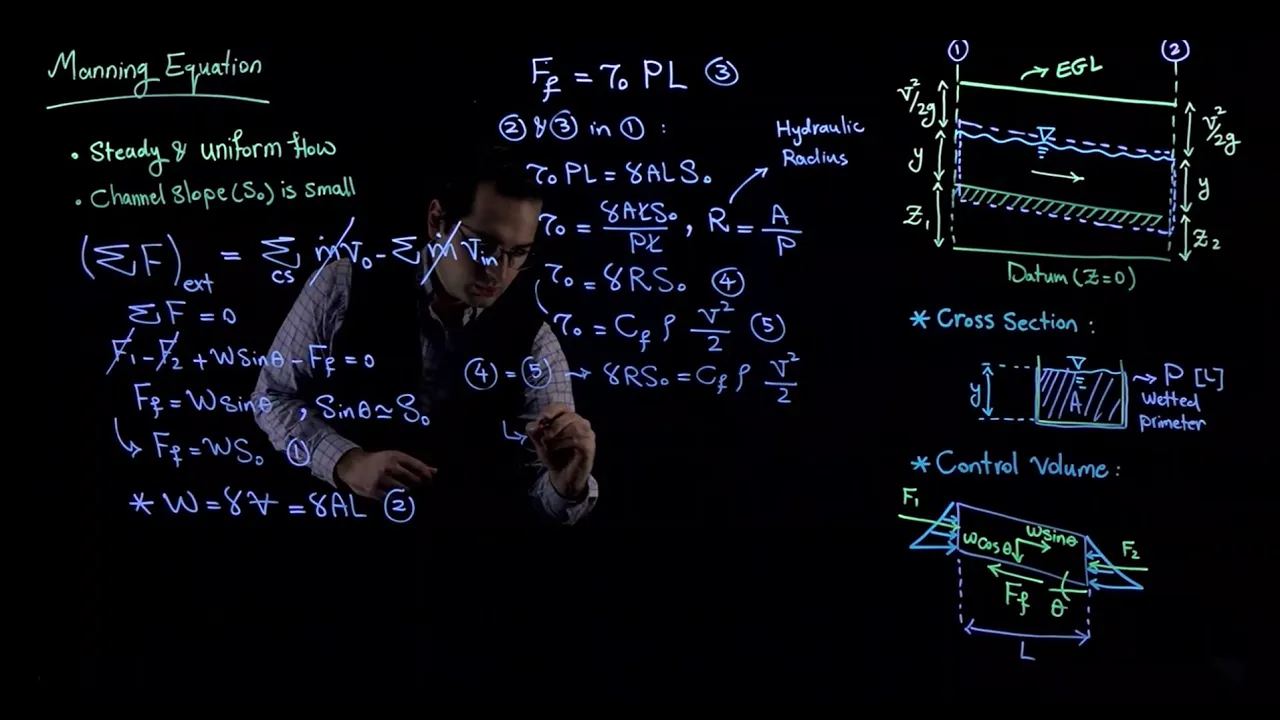 Manning Equation
• Steady & uniform flow
• Channel Slope (S₀) is small
(ΣF)ext = Σcs ṁv₀ - Σ ṁvin
ΣF = 0
F₁ - F₂ + W Sinθ - Ff = 0
Ff = W Sinθ , Sinθ ≃ S₀
↳ Ff = WS₀ ①
* W = γV = γAL ②
Ff = τ₀ PL ③
② & ③ in ① :
τ₀ PL = γALS₀
τ₀ = γALS₀/PL , R = A/P
Hydraulic
Radius
τ₀ = γRS₀ ④
τ₀ = Cf ρ V²/2 ⑤
④ = ⑤ → γRS₀ = Cf ρ V²/2
① ②
→ EGL
V²/2g
y
Z₁
V²/2g
y
Z₂
Datum (Z=0)
* Cross Section :
y
A
→ P [L]
Wetted
primeter
* Control Volume :
F₁
W Cosθ
W Sinθ
F₂
Ff
θ
L